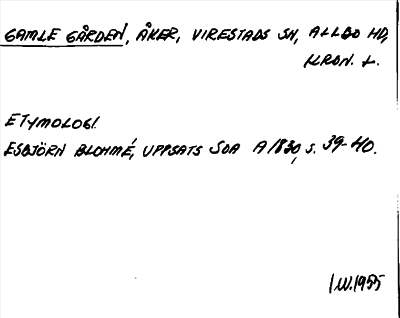 GAMLE GÅRDEN, ÅKER, VIRESTADS SN, ALLBO HD,
KRON. L.
ETYMOLOGI.
ESBJÖRN BLOHMÉ, UPPSATS SOA A 1830, S. 39-40.
I.W.1955